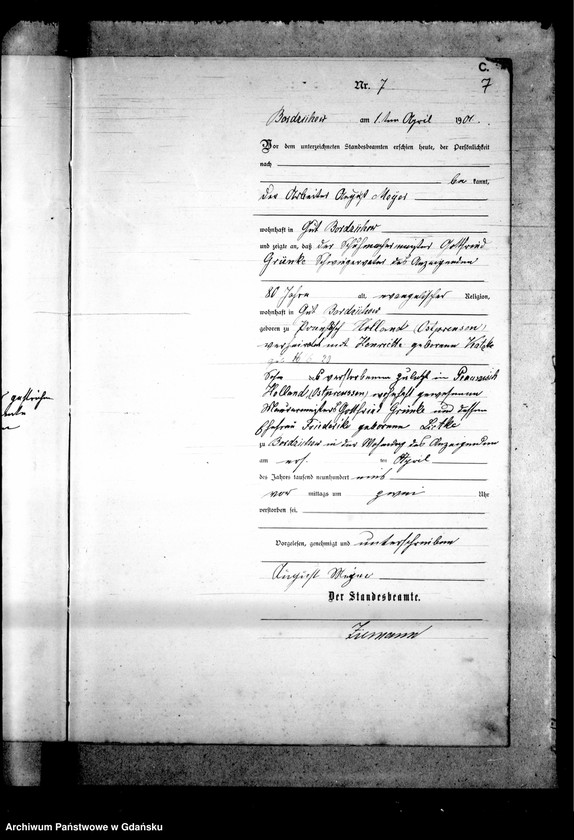 C.
Nr. 7
7
Bordzichow am 1. ten April 1901.
Vor dem unterzeichneten Standesbeamten erschien heute, der Persönlichkeit
nach
bekannt,
der Arbeiter August Meyer
wohnhaft in Gut Bordzichow
und zeigte an, daß der Schuhmachermeister Gottfried
Grünke Schwiegervater des Anzeigenden
80 Jahre alt, evangelischer Religion,
wohnhaft in Gut Bordzichow
geboren zu Holland (Ostpreussen)
verheirathet mit Henriette geborene
Sohn des verstorbenen zuletzt in Preussisch
Holland (Ostpreussen) wohnhaft gewesenen
Gottfried Grünke und dessen
Ehefrau Friederike geborene
zu Bordzichow in der Wohnung des Anzeigenden
am ersten April
des Jahres tausend neunhundert eins
vor mittags um zwei Uhr
verstorben sei.
Vorgelesen, genehmigt und unterschrieben
August
Der Standesbeamte.
Ziemann
gestrichen
Archiwum Państwowe w Gdańsku